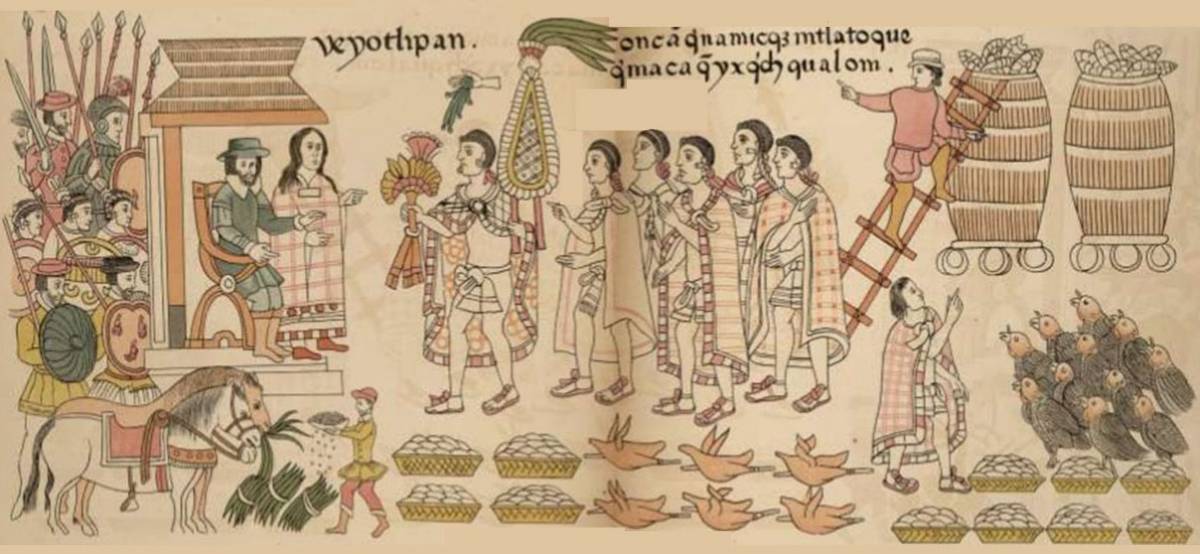 veyotlipan .
oncā q̄namicqȝ intlatoque
q̄maca q̄yxq̄ch qualoni .